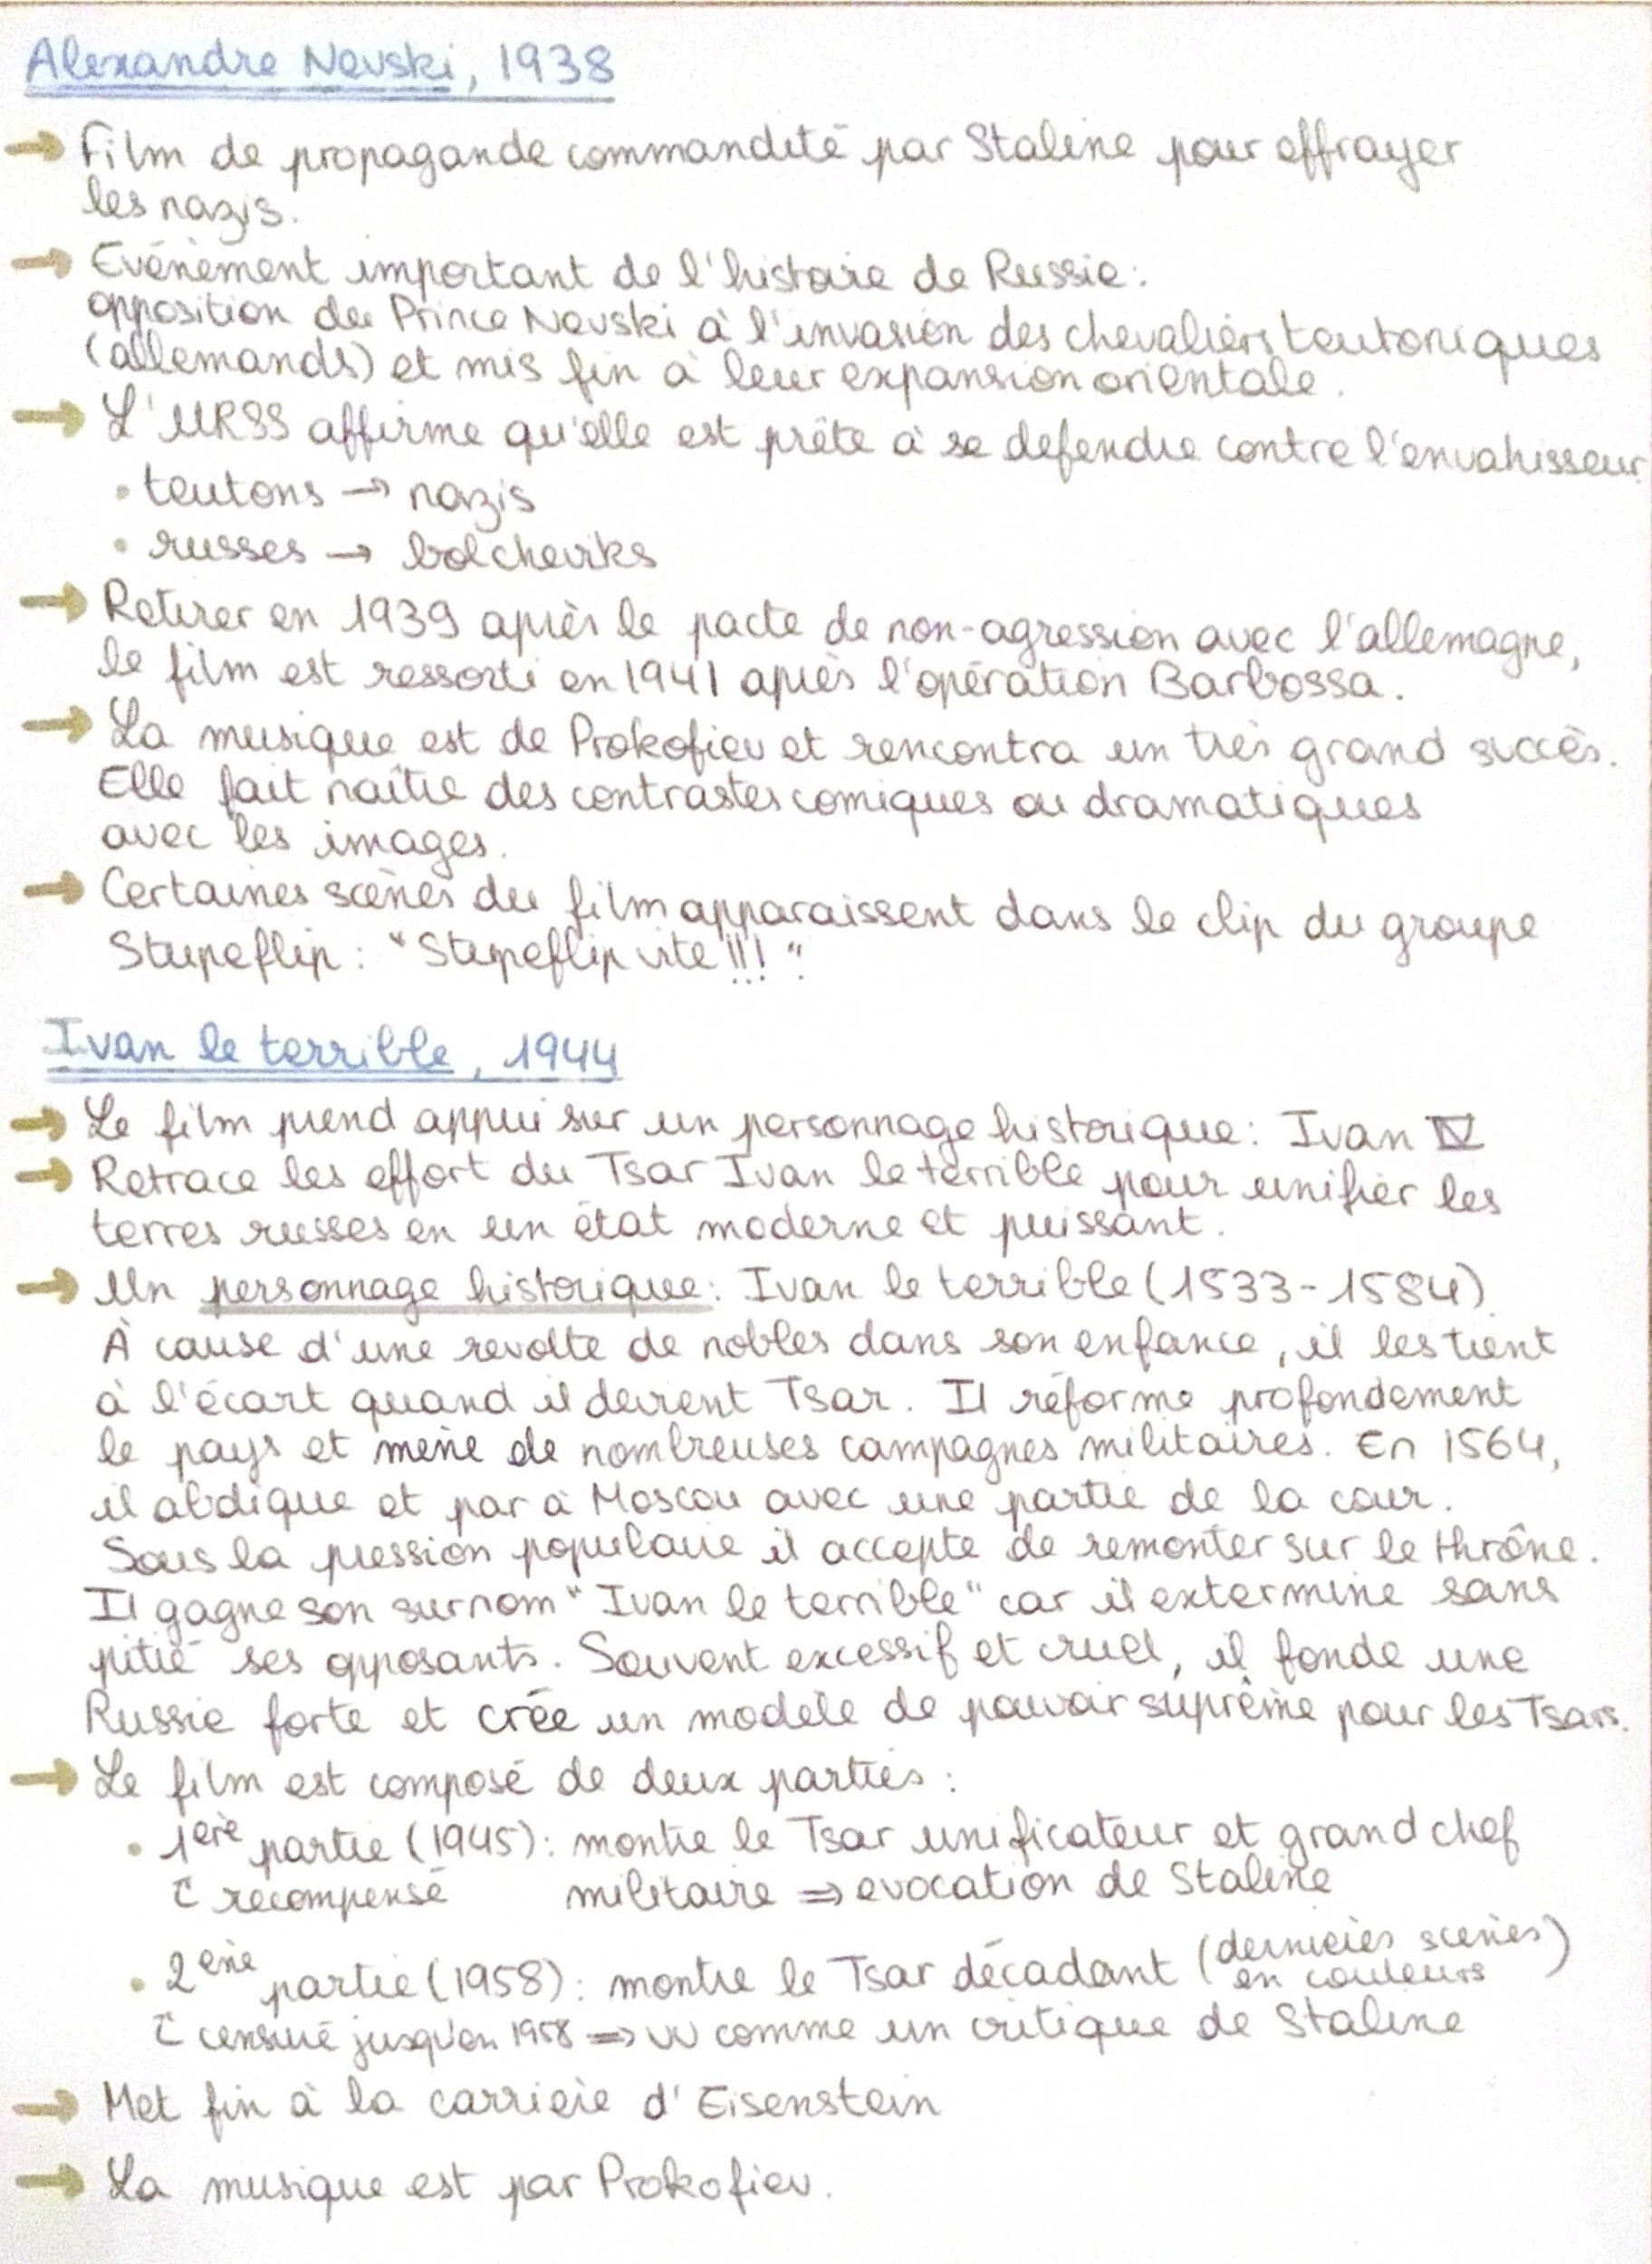 Alexandre Nevski, 1938
→ Film de propagande commandité par Staline pour effrayer
les nazis.
→ Evénement important de l'histoire de Russie:
opposition du Prince Nevski à l'invasion des chevaliers teutoniques
(allemands) et mis fin à leur expansion orientale.
→ L'URSS affirme qu'elle est prête à se défendre contre l'envahisseur.
• teutons → nazis
• russes → bolcheviks
→ Retirer en 1939 après le pacte de non-agression avec l'allemagne,
le film est ressorti en 1941 après l'opération Barbossa.
→ La musique est de Prokofiev et rencontra un très grand succès.
Elle fait naître des contrastes comiques ou dramatiques
avec les images.
→ Certaines scènes du film apparaissent dans le clip du groupe
Stupeflip: "Stupeflip vite !!! "
Ivan le terrible, 1944
→ Le film prend appui sur un personnage historique: Ivan IV
→ Retrace les effort du Tsar Ivan le terrible pour unifier les
terres russes en un état moderne et puissant.
→ Un personnage historique: Ivan le terrible (1533-1584)
À cause d'une révolte de nobles dans son enfance, il les tient
à l'écart quand il devient Tsar. Il réforme profondement
le pays et mène de nombreuses campagnes militaires. En 1564,
il abdique et par à Moscou avec une partie de la cour.
Sous la pression populaire il accepte de remonter sur le thrône.
Il gagne son surnom "Ivan le terrible" car il extermine sans
pitié ses opposants. Souvent excessif et cruel, il fonde une
Russie forte et crée un modèle de pouvoir suprême pour les Tsars.
→ Le film est composé de deux parties:
• 1ère partie (1945): montre le Tsar unificateur et grand chef
récompensé militaire ⇒ évocation de Staline
• 2ème partie (1958): montre le Tsar décadant (dernières scènes
en couleurs)
censuré jusqu'en 1958 ⇒ vu comme un critique de Staline
→ Met fin à la carrière d'Eisenstein
→ La musique est par Prokofiev.